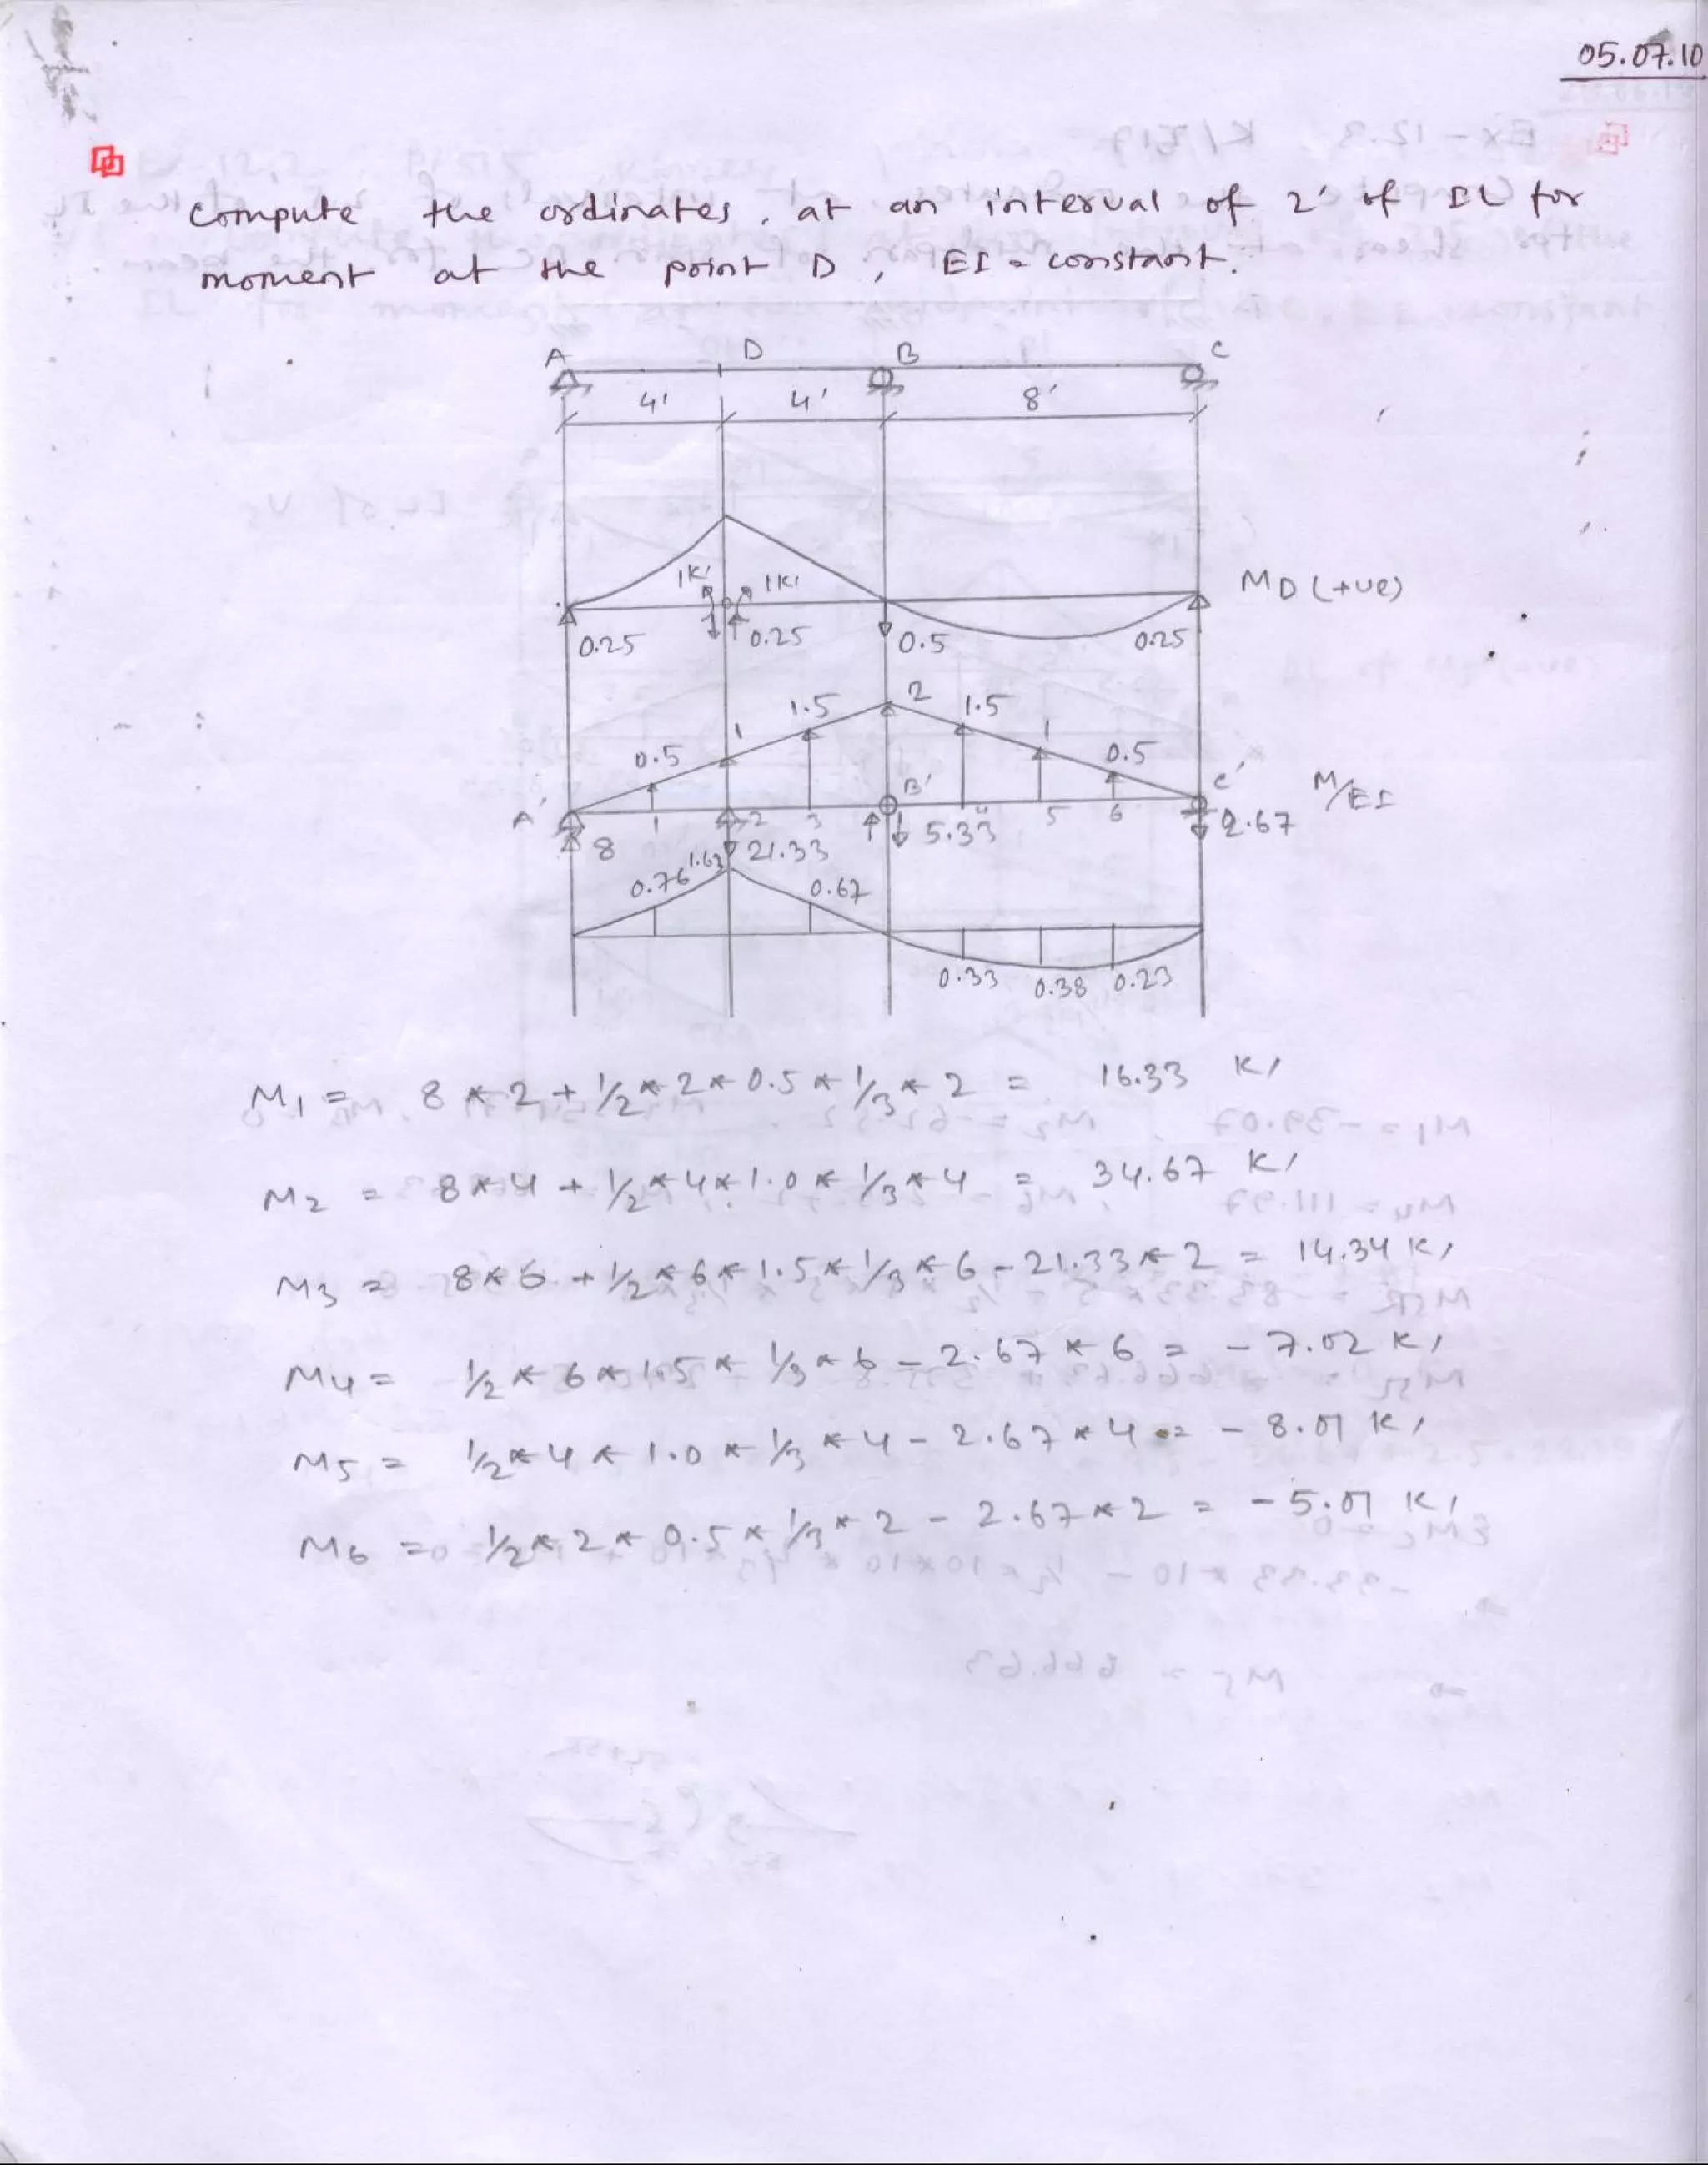 05.07.10
compute the ordinates, at an interval of 2' of IL for
moment at the point D, EI = constant.
A D B C
4' 4' 8'
1K' 1K' MD (+ve)
0.25 0.25 0.5 0.25
0.5 1 1.5 2 1.5 1 0.5
A' B' C' M/EI
1 2 3 4 5 6
8 21.33 5.33 2.67
0.76 1.63 0.67
0.33 0.38 0.23
M1 = 8 * 2 + 1/2 * 2 * 0.5 * 1/3 * 2 = 16.33 K'
M2 = 8 * 4 + 1/2 * 4 * 1.0 * 1/3 * 4 = 34.67 K'
M3 = 8 * 6 + 1/2 * 6 * 1.5 * 1/3 * 6 - 21.33 * 2 = 14.34 K'
M4 = 1/2 * 6 * 1.5 * 1/3 * 6 - 2.67 * 6 = - 7.02 K'
M5 = 1/2 * 4 * 1.0 * 1/3 * 4 - 2.67 * 4 = - 8.01 K'
M6 = 1/2 * 2 * 0.5 * 1/3 * 2 - 2.67 * 2 = - 5.01 K'